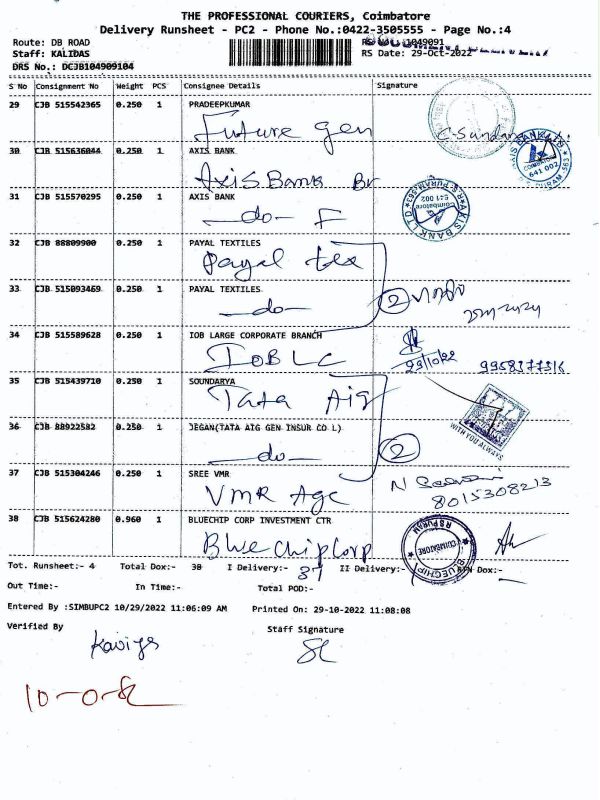 THE PROFESSIONAL COURIERS, Coimbatore
Delivery Runsheet - PC2 - Phone No.:0422-3505555 - Page No.:4
Route: DB ROAD
Staff: KALIDAS
RS Date: 29-Oct-2022
DRS No.: DCJB104909104
S No Consignment No Weight PCS Consignee Details Signature
29 CJB 515542365 0.250 1 PRADEEPKUMAR
Future gen
30 CJB 515636044 0.250 1 AXIS BANK
Axis Bank Br
31 CJB 515570295 0.250 1 AXIS BANK
-do- F
32 CJB 88809900 0.250 1 PAYAL TEXTILES
Payal tex
33 CJB 515093469 0.250 1 PAYAL TEXTILES
-do- 2
34 CJB 515589628 0.250 1 IOB LARGE CORPORATE BRANCH
IOB LC 29/10/22
35 CJB 515439710 0.250 1 SOUNDARYA
Tata Aig
WITH YOU ALWAYS
36 CJB 88922582 0.250 1 JEGAN(TATA AIG GEN INSUR CO L)
-do- 2
37 CJB 515304246 0.250 1 SREE VMR
VMR Age 8015308213
38 CJB 515624280 0.960 1 BLUECHIP CORP INVESTMENT CTR
Blue chip Corp
BLUECHIP COIMBATORE R S PURAM
Tot. Runsheet:- 4 Total Dox:- 38 I Delivery:- 37 II Delivery:- Dox:-
Out Time:- In Time:- Total POD:-
Entered By :SIMBUPC2 10/29/2022 11:06:09 AM Printed On: 29-10-2022 11:08:08
Verified By Staff Signature
Kaviya
10-0-